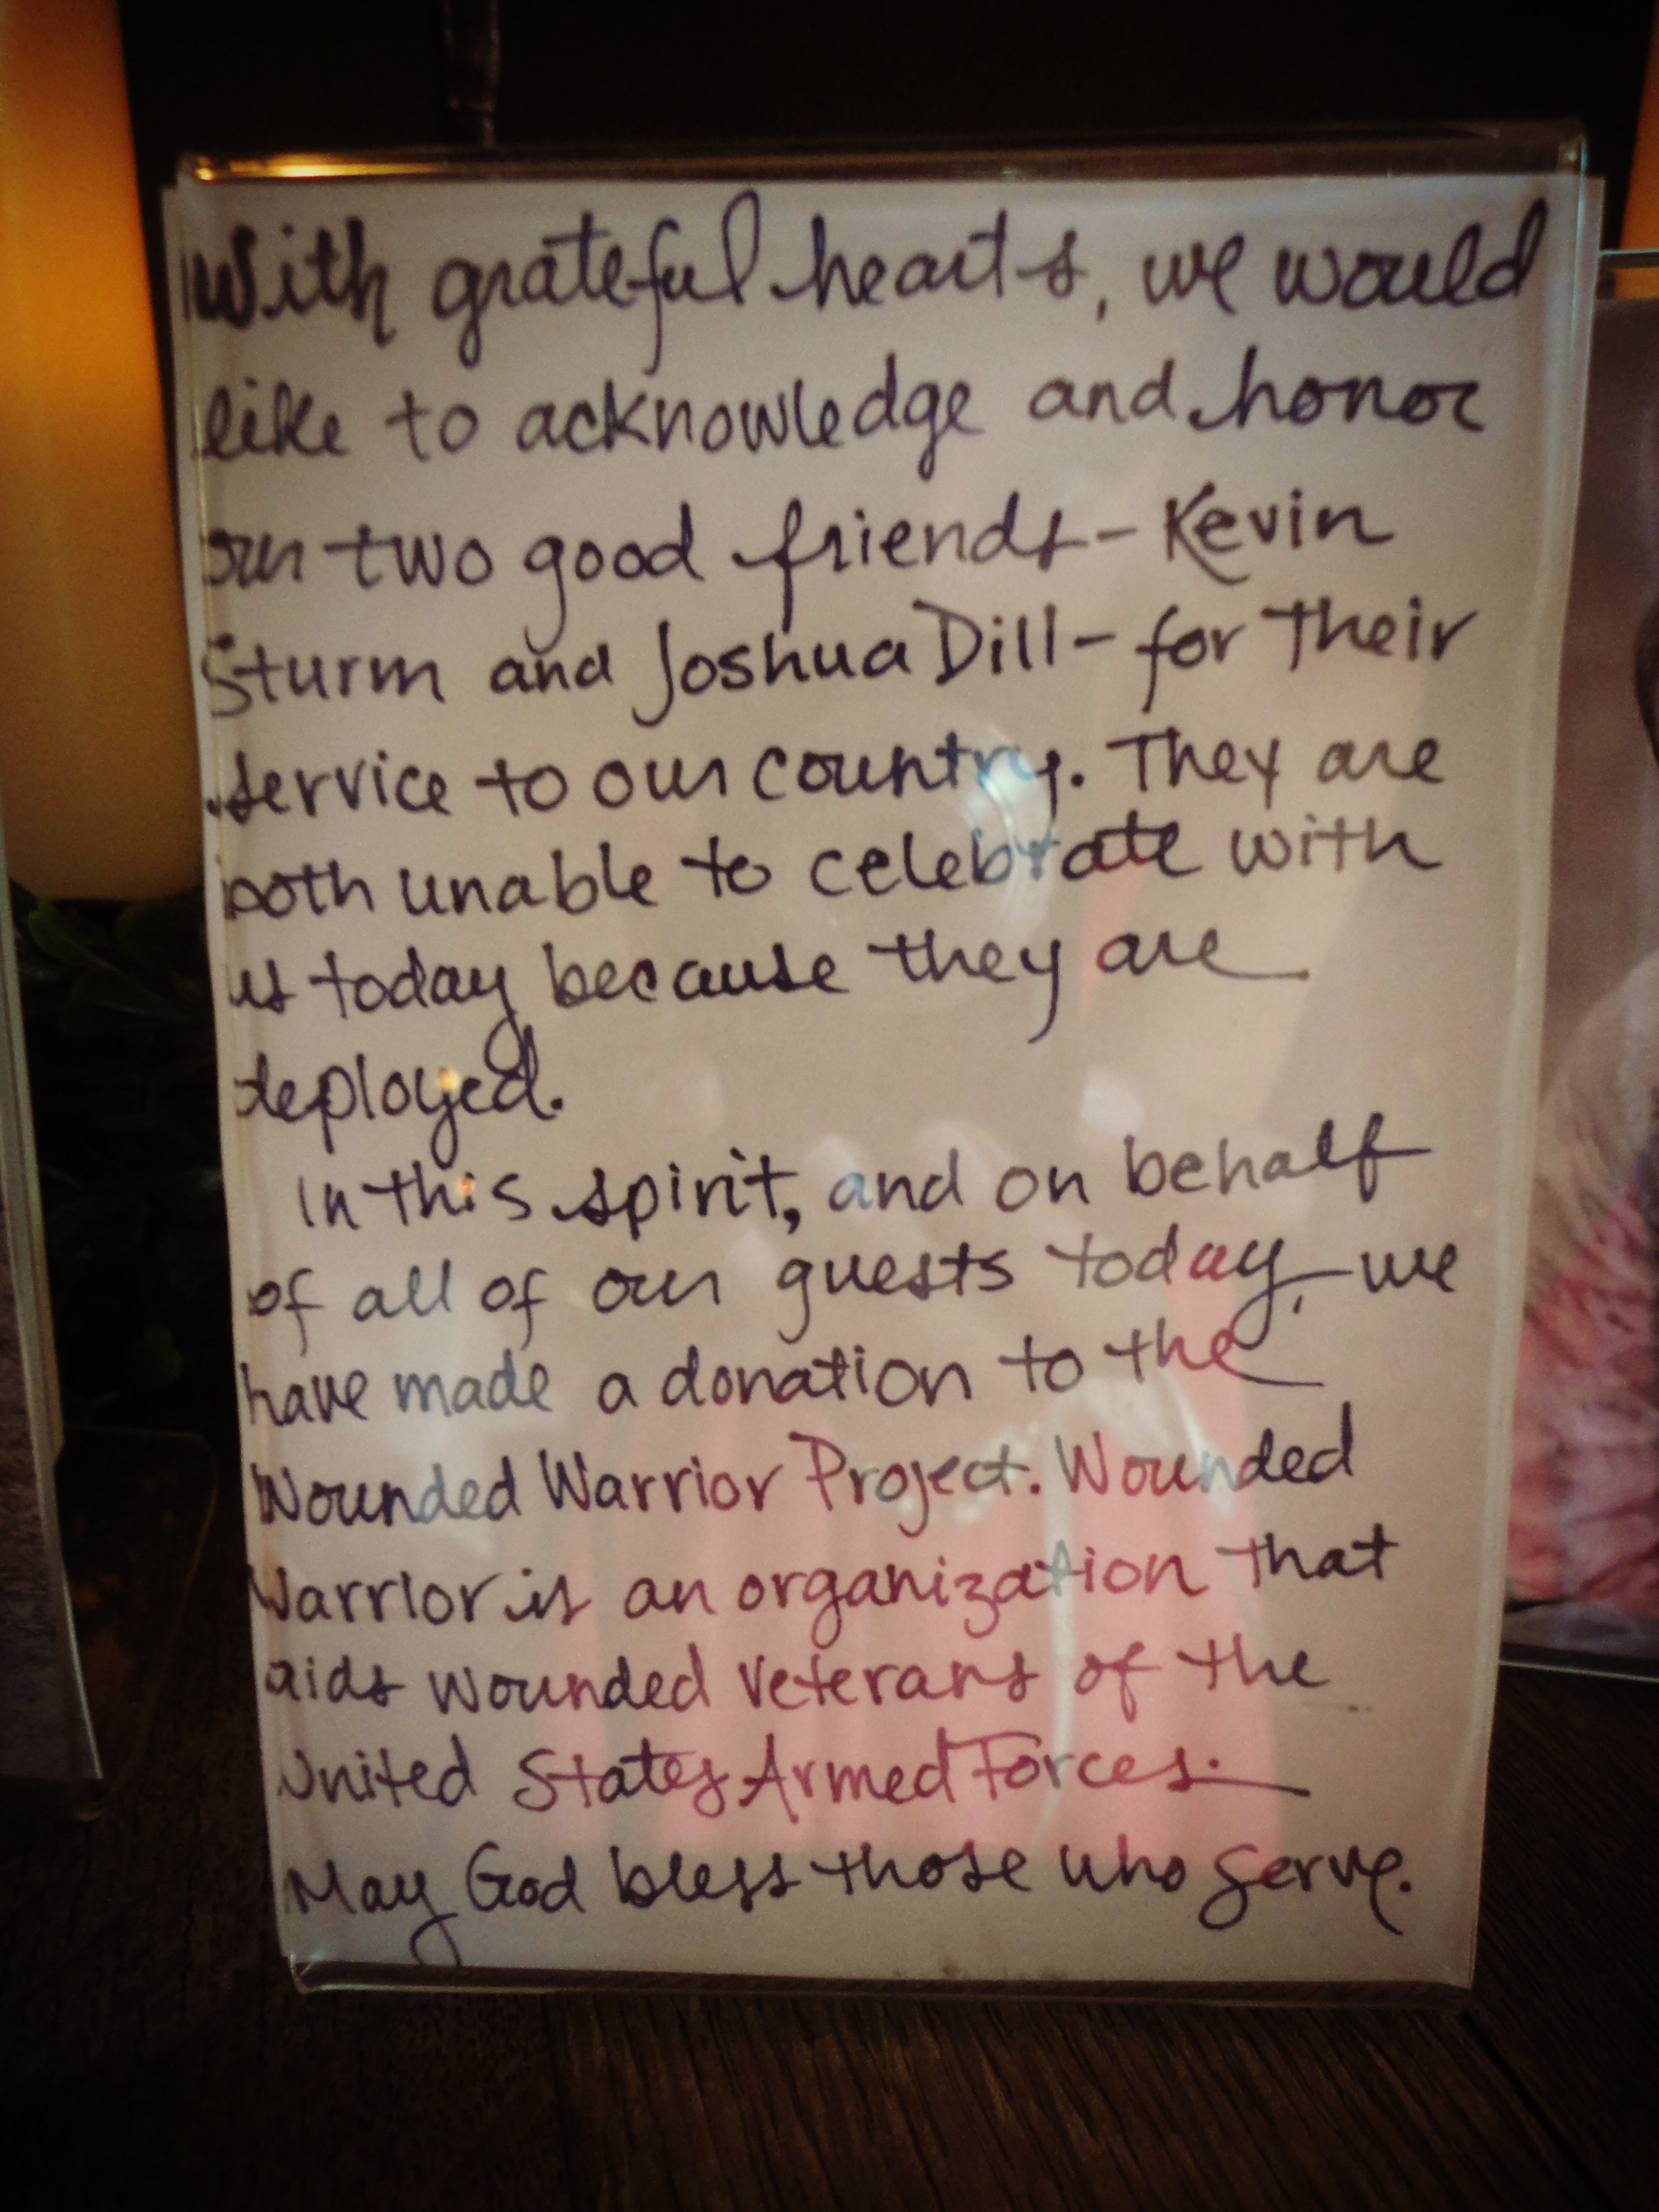 With grateful hearts, we would
like to acknowledge and honor
our two good friends - Kevin
Sturm and Joshua Dill - for their
service to our country. They are
both unable to celebrate with
us today because they are
deployed.
In this spirit, and on behalf
of all of our guests today, we
have made a donation to the
Wounded Warrior Project. Wounded
Warrior is an organization that
aids wounded veterans of the
United States Armed Forces.
May God bless those who serve.